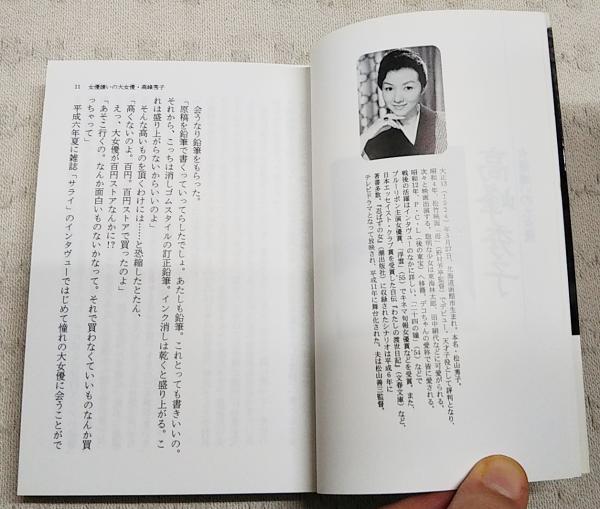 大正13(1924)年3月27日、北海道函館市生まれ。本名・松山秀子。
昭和4年、松竹映画「母」(野村芳亭監督)でデビュー。天才子役として評判となり、
次々と映画出演する。聡明な少女は東海林太郎、田中絹代などに可愛がられる。
昭和12年、P・C・L(後の東宝)へ移籍。デコちゃんの愛称で皆に愛される。
戦後の活躍はインタヴューのなかに詳しい。「二十四の瞳」(54)などで
ブルーリボン主演女優賞、「浮雲」(55)でキネマ旬報女優賞などを受賞。また、
日本エッセイスト・クラブ賞を受賞した自伝『わたしの渡世日記』(文春文庫)など、
著書多数。『花ぼけの女』(潮出版社)に収録されたシナリオは平成6年に
テレビドラマとなって放映され、平成11年に舞台化された。夫は松山善三監督。
11 女優嫌いの大女優・高峰秀子
会うなり鉛筆をもらった。
「原稿を鉛筆で書くっていってらしたでしょ。あたしも鉛筆。これとっても書きいいの。
それから、こっちは消しゴムスタイルの訂正鉛筆。インク消しは乾くと盛り上がる。こ
れは盛り上がらないからいいのよ」
そんな高いものを頂くわけには……と恐縮したとたん、
「高くないのよ。百円、百円ストアで買ったのよ」
えっ、大女優が百円ストアなんかに!?
「あそこ行くの。なんか面白いものないかなって。それで買わなくていいものなんか買
っちゃって」
平成六年夏に雑誌「サライ」のインタヴューではじめて憧れの大女優に会うことがで